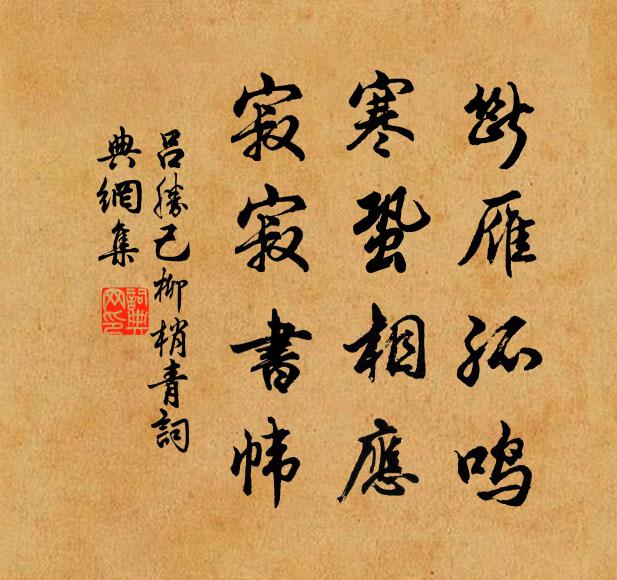 斷雁孤鳴
寒蛩相應
寂寂書幃
呂勝己柳梢青詞
典網集
詞典網印